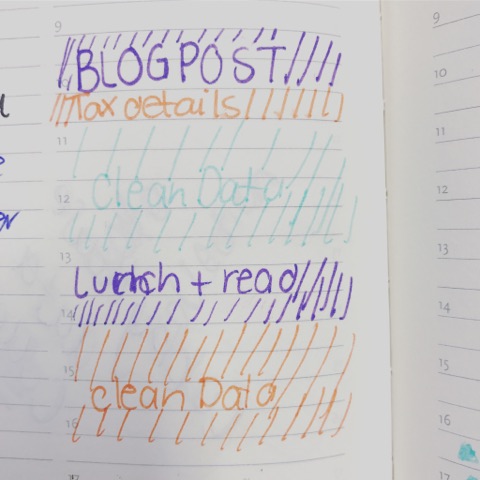 9
BLOG POST
Tax details
11
Clean Data
12
13
Lunch + read
14
15
clean Data
16
9
10
11
12
13
14
15
16
17